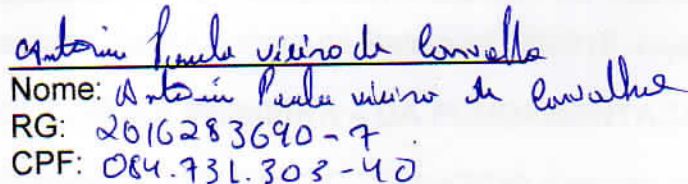 Antonia Paula vieira de Carvalho
Nome: Antonia Paula vieira de Carvalho
RG: 2016283690-7
CPF: 084.731.303-40